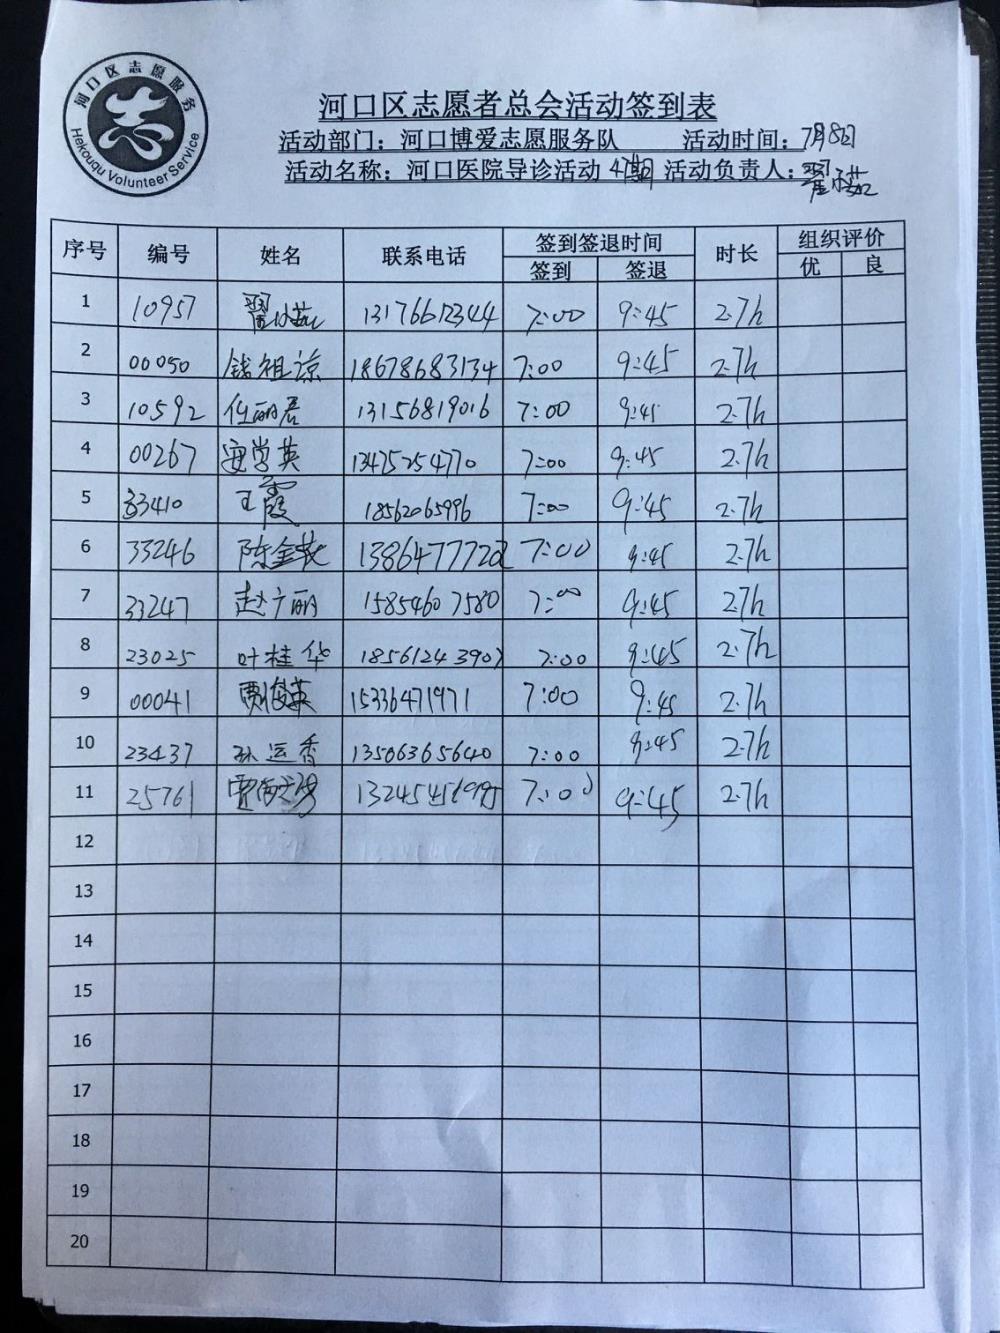 河口区志愿服务
志
Hekouqu Volunteer Service
河口区志愿者总会活动签到表
活动部门：河口博爱志愿服务队 活动时间：7月8日
活动名称：河口医院导诊活动 47期 活动负责人：翟
序号 编号 姓名 联系电话 签到签退时间 时长 组织评价
签到 签退 优 良
1 10957 13176612344 7:00 9:45 2.7h
2 00050 钱祖谅 18678683134 7:00 9:45 2.7h
3 10592 任丽居 13156819016 7:00 9:45 2.7h
4 00267 安学英 13475254770 7:00 9:45 2.7h
5 33410 王霞 18562065996 7:00 9:45 2.7h
6 33246 陈金花 7:00 9:45 2.7h
7 33247 赵广丽 15854607580 7:00 9:45 2.7h
8 23025 叶桂华 18561243907 7:00 9:45 2.7h
9 00041 贾俊英 15336471971 7:00 9:45 2.7h
10 23437 孙运香 13506365640 7:00 9:45 2.7h
11 25761 7:00 9:45 2.7h
12
13
14
15
16
17
18
19
20